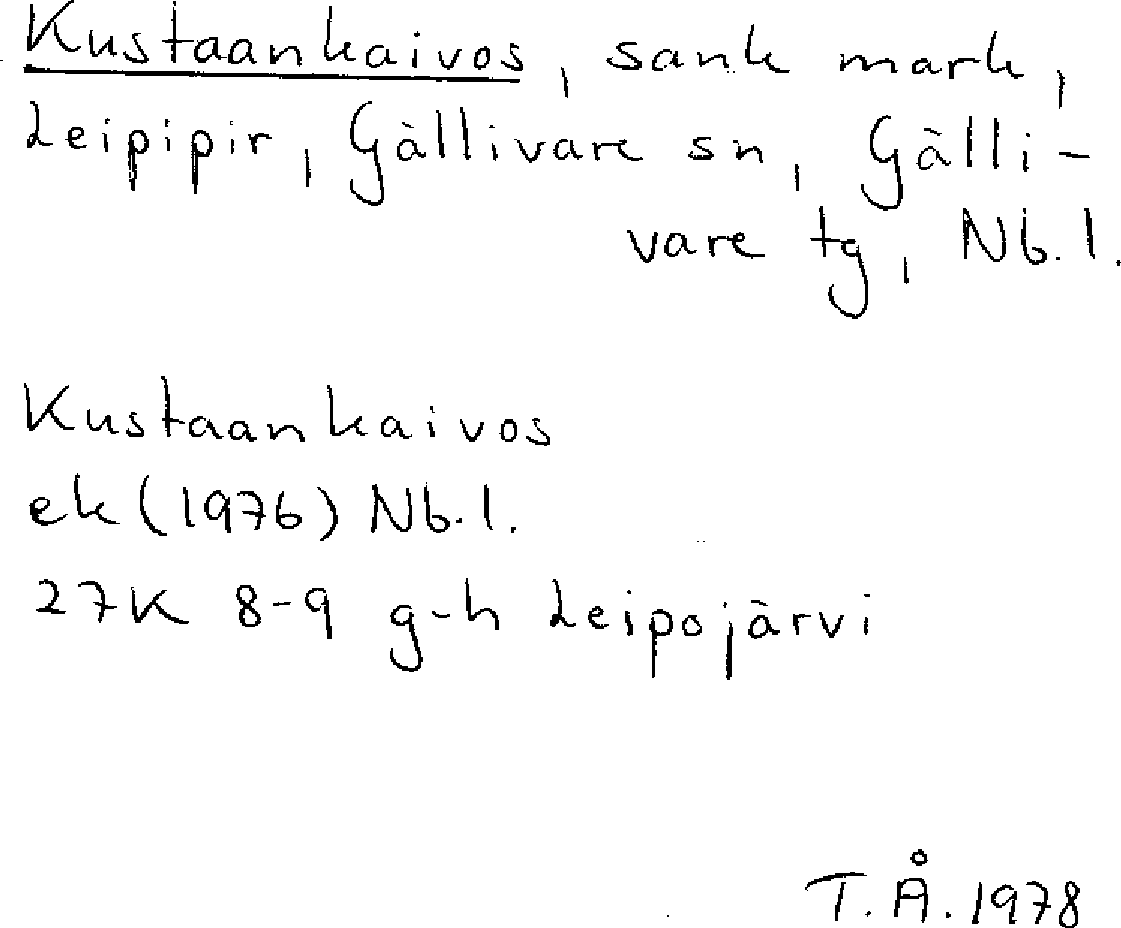 Kustaankaivos, sank mark,
Leipipir, Gällivare sn, Gälli-
vare tg, Nb.l.
Kustaankaivos
ek (1976) Nb.l.
27K 8-9 g-h Leipojärvi
T.Å.1978